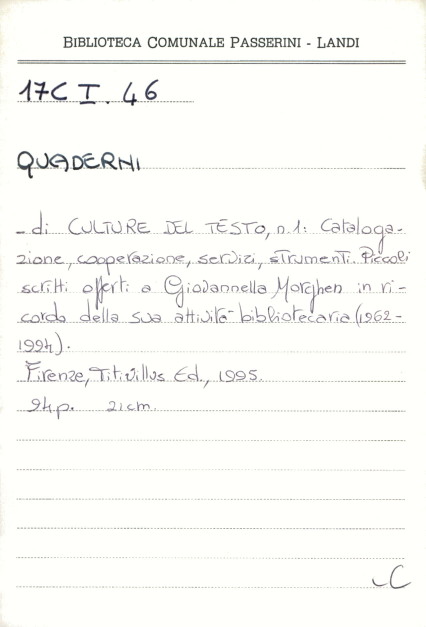 BIBLIOTECA COMUNALE PASSERINI - LANDI
17C I. 46
QUADERNI
- di CULTURE DEL TESTO, n.1: Cataloga-
zione, cooperazione, servizi, strumenti. Piccoli
scritti offerti a Giovannella Morghen in ri-
cordo della sua attività bibliotecaria (1962-
1994).
Firenze, Titivillus Ed., 1995.
94p. 21cm.